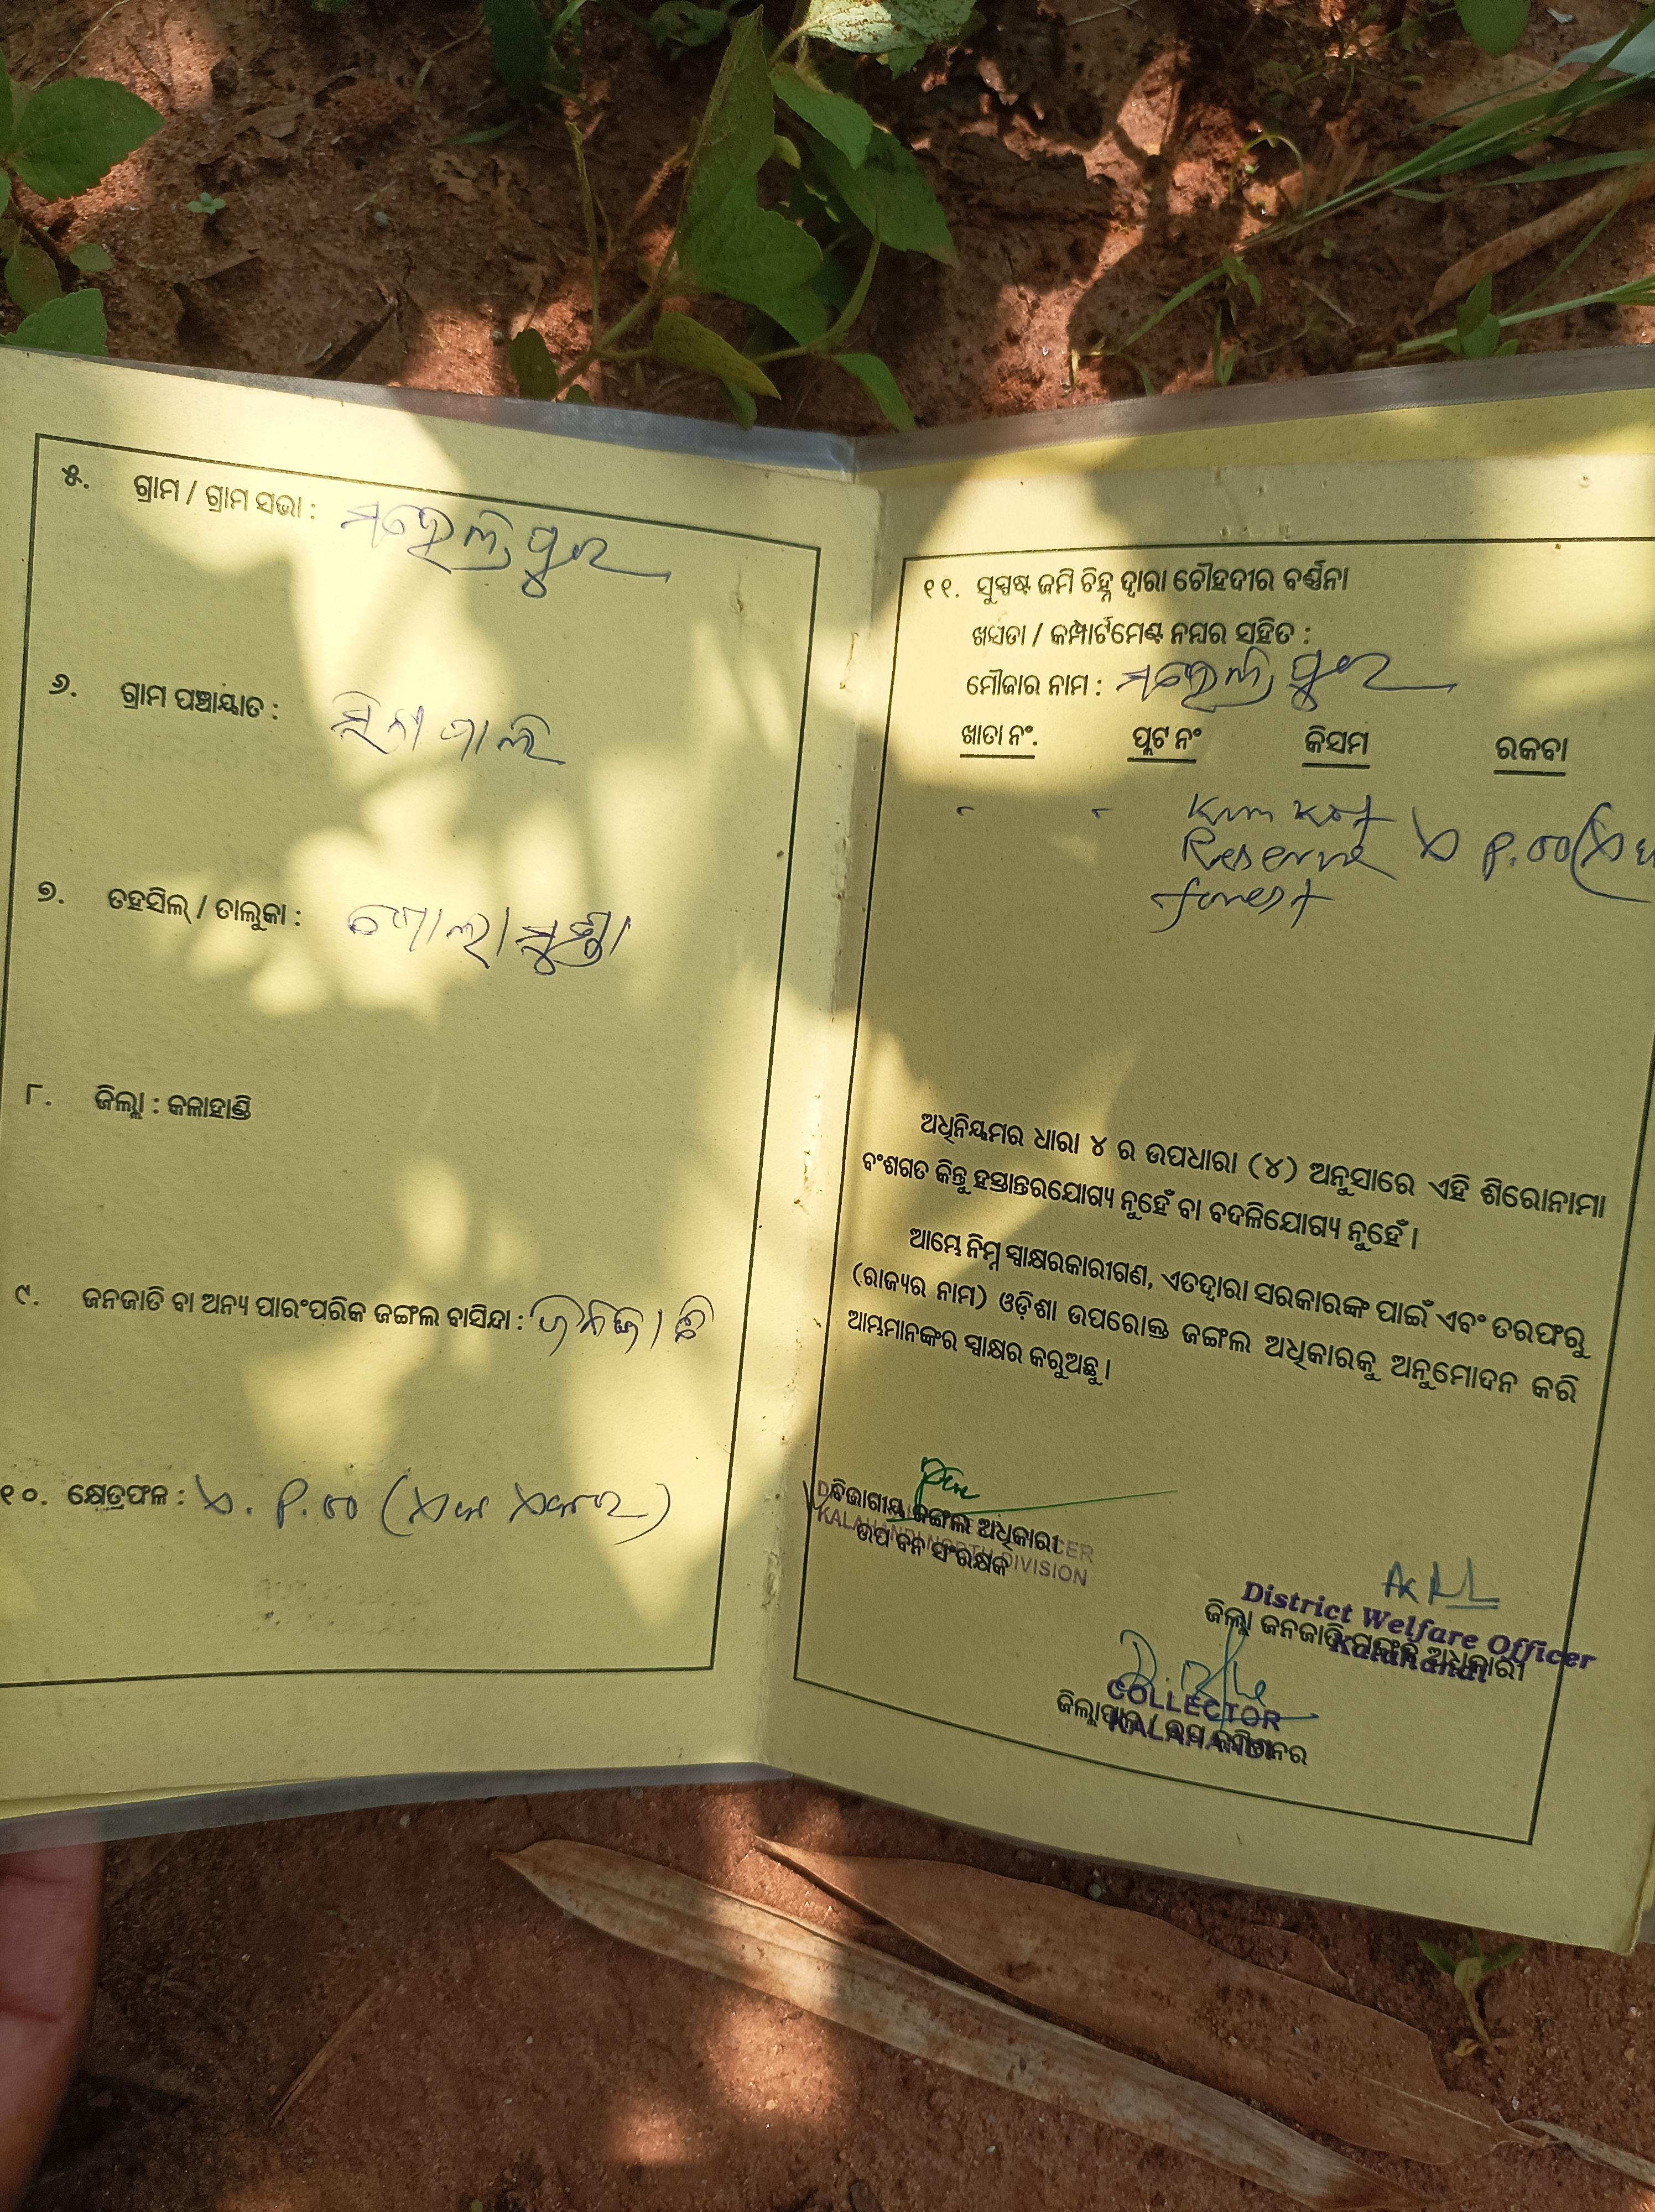 ୫. ଗ୍ରାମ / ଗ୍ରାମ ସଭା :
୬. ଗ୍ରାମ ପଞ୍ଚାୟାତ : ସିନାପାଲି
୭. ତହସିଲ୍ / ତାଲୁକା : ଗୋଲାମୁଣ୍ଡା
୮. ଜିଲ୍ଲା : କଳାହାଣ୍ଡି
୯. ଜନଜାତି ବା ଅନ୍ୟ ପାରଂପରିକ ଜଙ୍ଗଲ ବାସିନ୍ଦା : ଜନଜାତି
୧୦. କ୍ଷେତ୍ରଫଳ :
୧୧. ସୁସ୍ପଷ୍ଟ ଜମି ଚିହ୍ନ ଦ୍ୱାରା ଚୌହଦୀର ବର୍ଣ୍ଣନା
ଖସଡା / କମ୍ପାର୍ଟମେଣ୍ଟ ନମ୍ବର ସହିତ :
ମୌଜାର ନାମ :
ଖାତା ନଂ. ପ୍ଲଟ ନଂ କିସମ ରକବା
- -
Reserve
forest
ଅଧିନିୟମର ଧାରା ୪ ର ଉପଧାରା (୪) ଅନୁସାରେ ଏହି ଶିରୋନାମା
ବଂଶଗତ କିନ୍ତୁ ହସ୍ତାନ୍ତରଯୋଗ୍ୟ ନୁହେଁ ବା ବଦଳିଯୋଗ୍ୟ ନୁହେଁ ।
ଆମ୍ଭେ ନିମ୍ନ ସ୍ୱାକ୍ଷରକାରୀଗଣ, ଏତଦ୍ୱାରା ସରକାରଙ୍କ ପାଇଁ ଏବଂ ତରଫରୁ
(ରାଜ୍ୟର ନାମ) ଓଡ଼ିଶା ଉପରୋକ୍ତ ଜଙ୍ଗଲ ଅଧିକାରକୁ ଅନୁମୋଦନ କରି
ଆମ୍ଭମାନଙ୍କର ସ୍ୱାକ୍ଷର କରୁଅଛୁ ।
ବିଭାଗୀୟ ଜଙ୍ଗଲ ଅଧିକାରୀ
KALAHANDI NORTH DIVISION
ଉପ ବନ ସଂରକ୍ଷକ
District Welfare Officer
ଜିଲ୍ଲା ଜନଜାତି ମଙ୍ଗଳ ଅଧିକାରୀ
Kalahandi
COLLECTOR
ଜିଲ୍ଲାପାଳ / ଉପ କମିଶନର
KALAHANDI